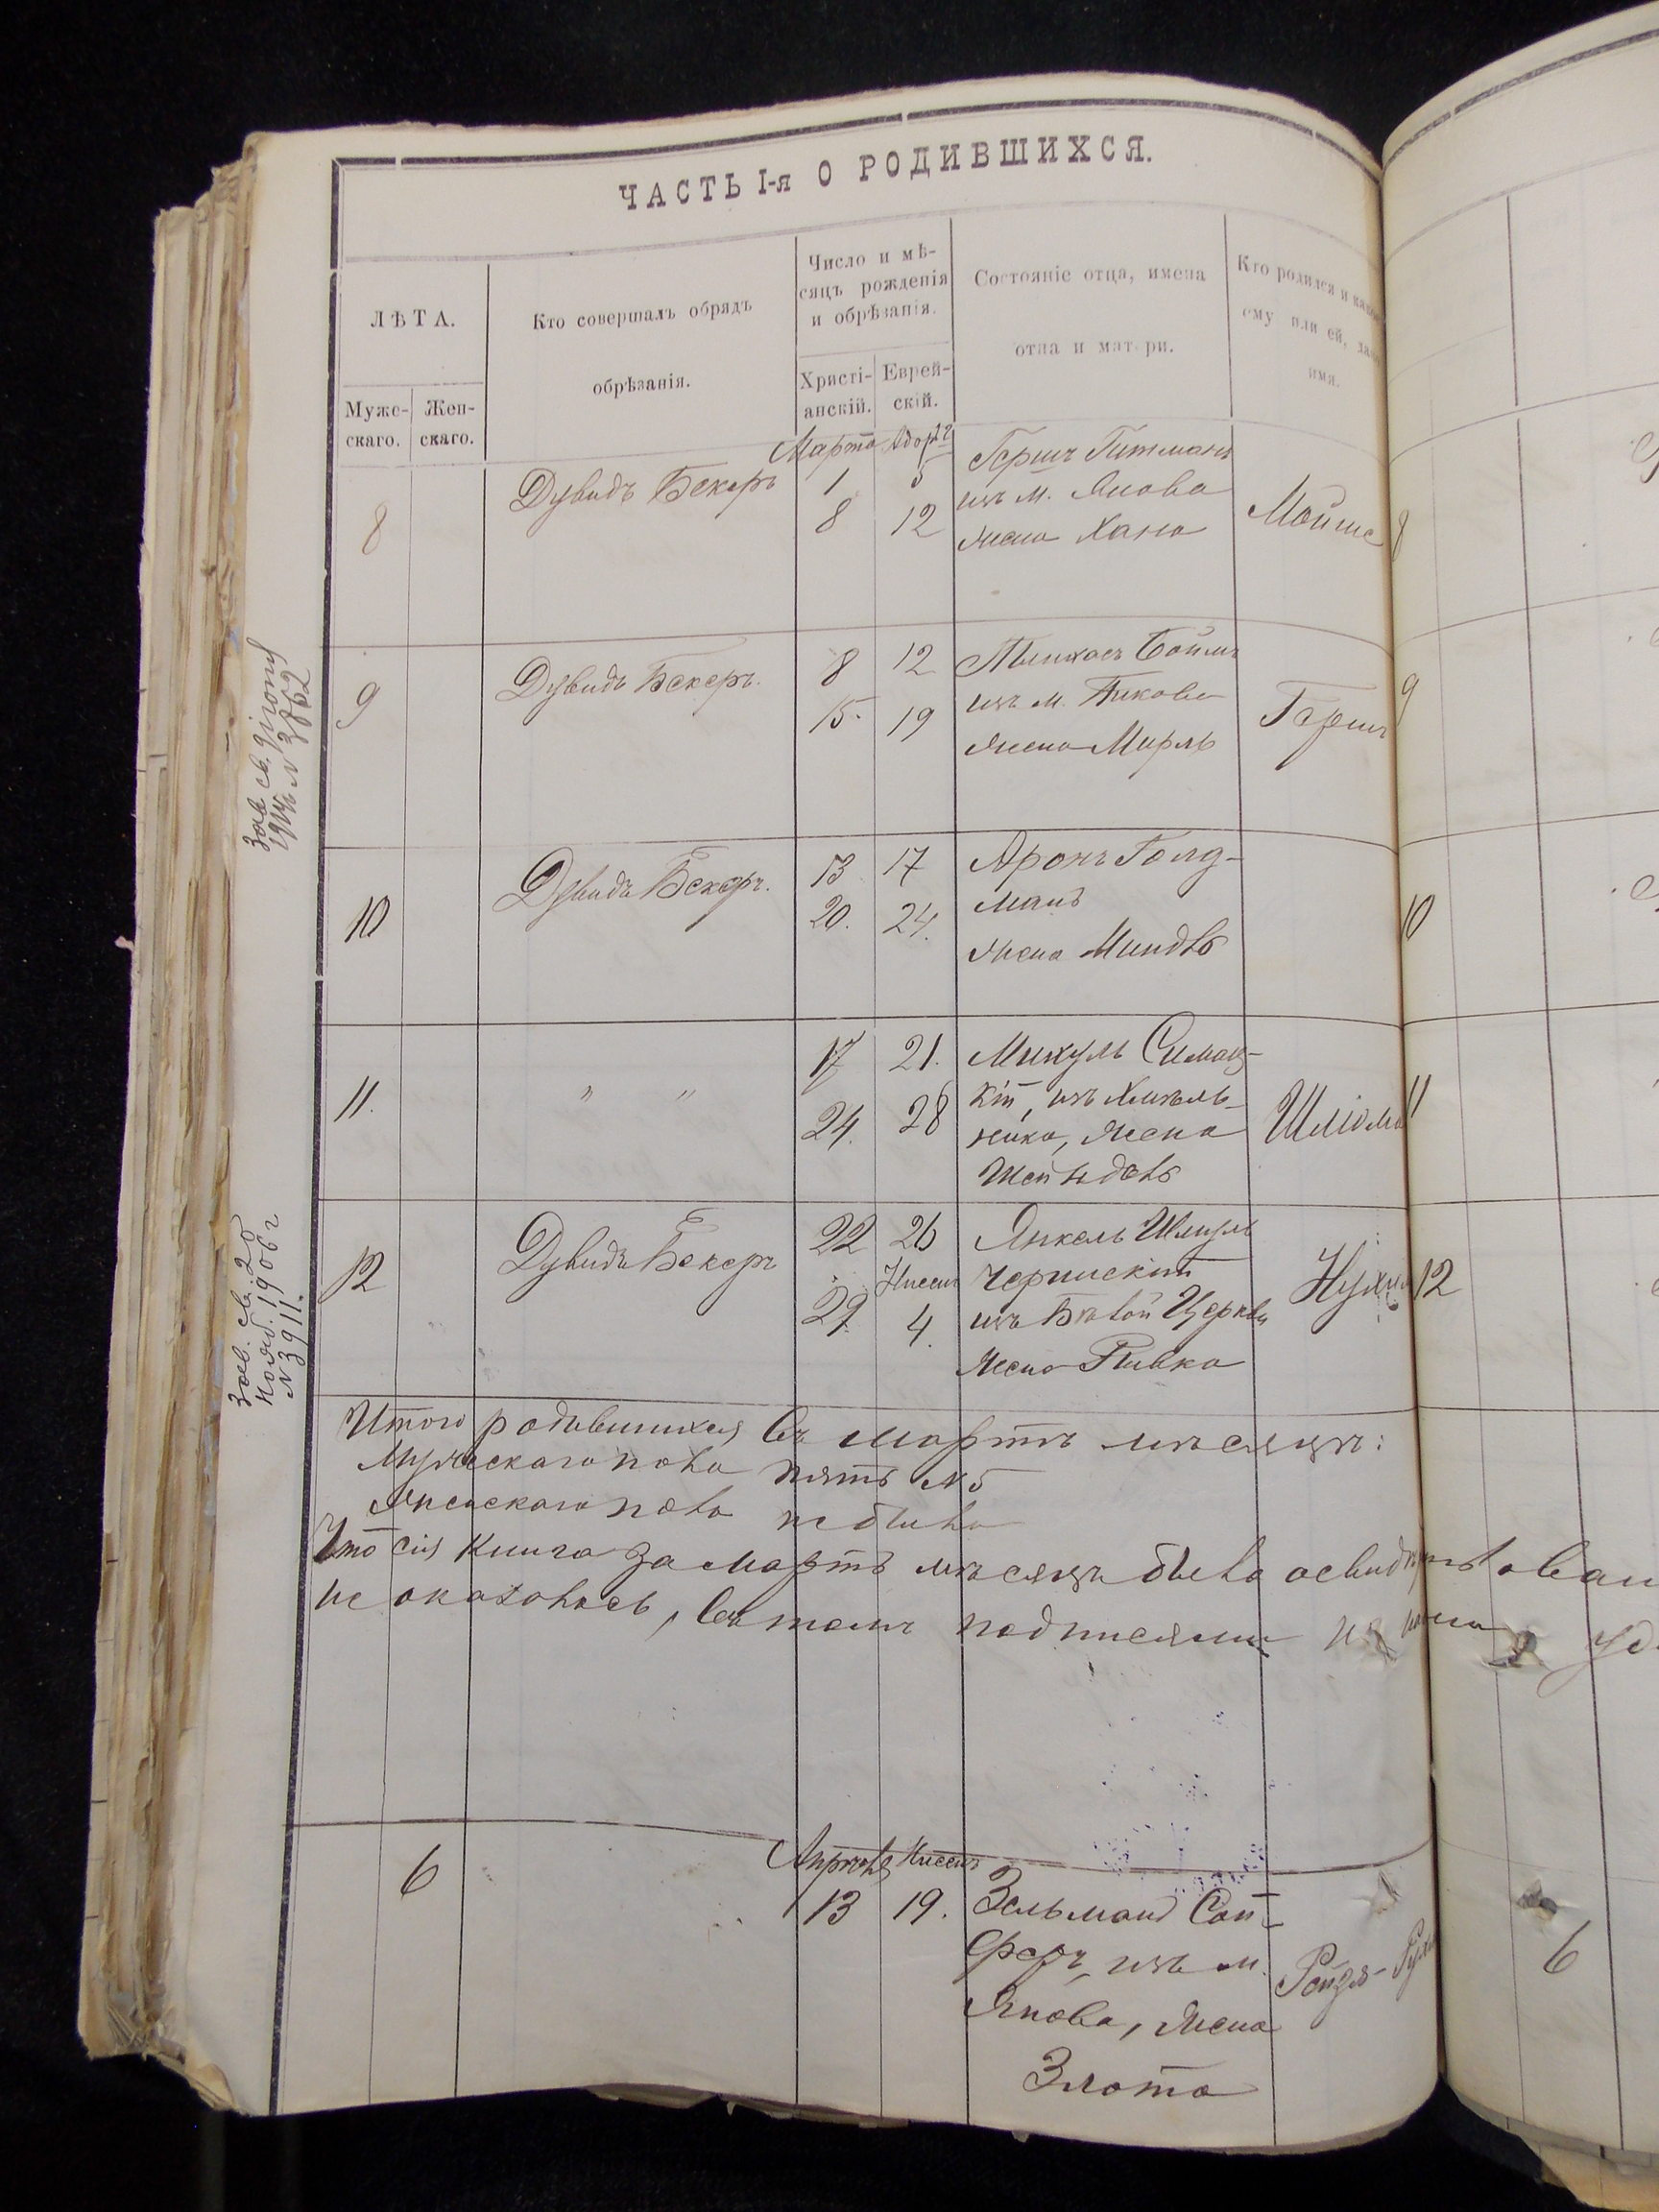 ЧАСТЬ I-я О РОДИВШИХСЯ.
ЛѢТА.
Мужс-
скаго.
Жен-
скаго.
Кто совершалъ обрядъ
обрѣзанія.
Число и мѣ-
сяцъ рожденія
и обрѣзанія.
Христі-
анскій.
Еврей-
скій.
Состояніе отца, имена
отца и матери.
Кто родился и
ему или ей,
имя.
Марта
8
Дувидъ Бекеръ
1 5
8 12
Гершъ Гитманъ
изъ м. Янова
жена Хана
Мойше
8
9
Дувидъ Бекеръ.
8 12
15. 19
Пинхасъ
изъ м. Пикова
жена Мирль
Гершъ
9
10
Дувидъ Бекеръ.
13 17
20. 24.
Аронъ Голд-
манъ
жена Миндль
10
11.
" "
17 21.
24. 28
Михуль Симац-
кій, изъ Хмѣль-
ника, жена
Шейндель
Шліома
11
12
Дувидъ Бекеръ
22 26
Ниссанъ
29. 4.
Янкель Шмуль
Чернискій
изъ Бѣлой Церкви
жена Ривка
Нухим
12
Итого родившихся въ мартѣ мѣсяцѣ:
Мужескаго пола пять №5
Женскаго пола не было
Что сія книга за мартъ мѣсяцъ была освидѣтельствован
не оказалось, въ томъ подписями
Апрѣль Ниссанъ
6
13 19.
Зельманъ Сап-
феръ, изъ м.
Янова, жена
Злота
Рейзя-
6
Зав. св.
1914 г. N 3862
Зав. св. 28
нояб. 1906 г
N 3911.